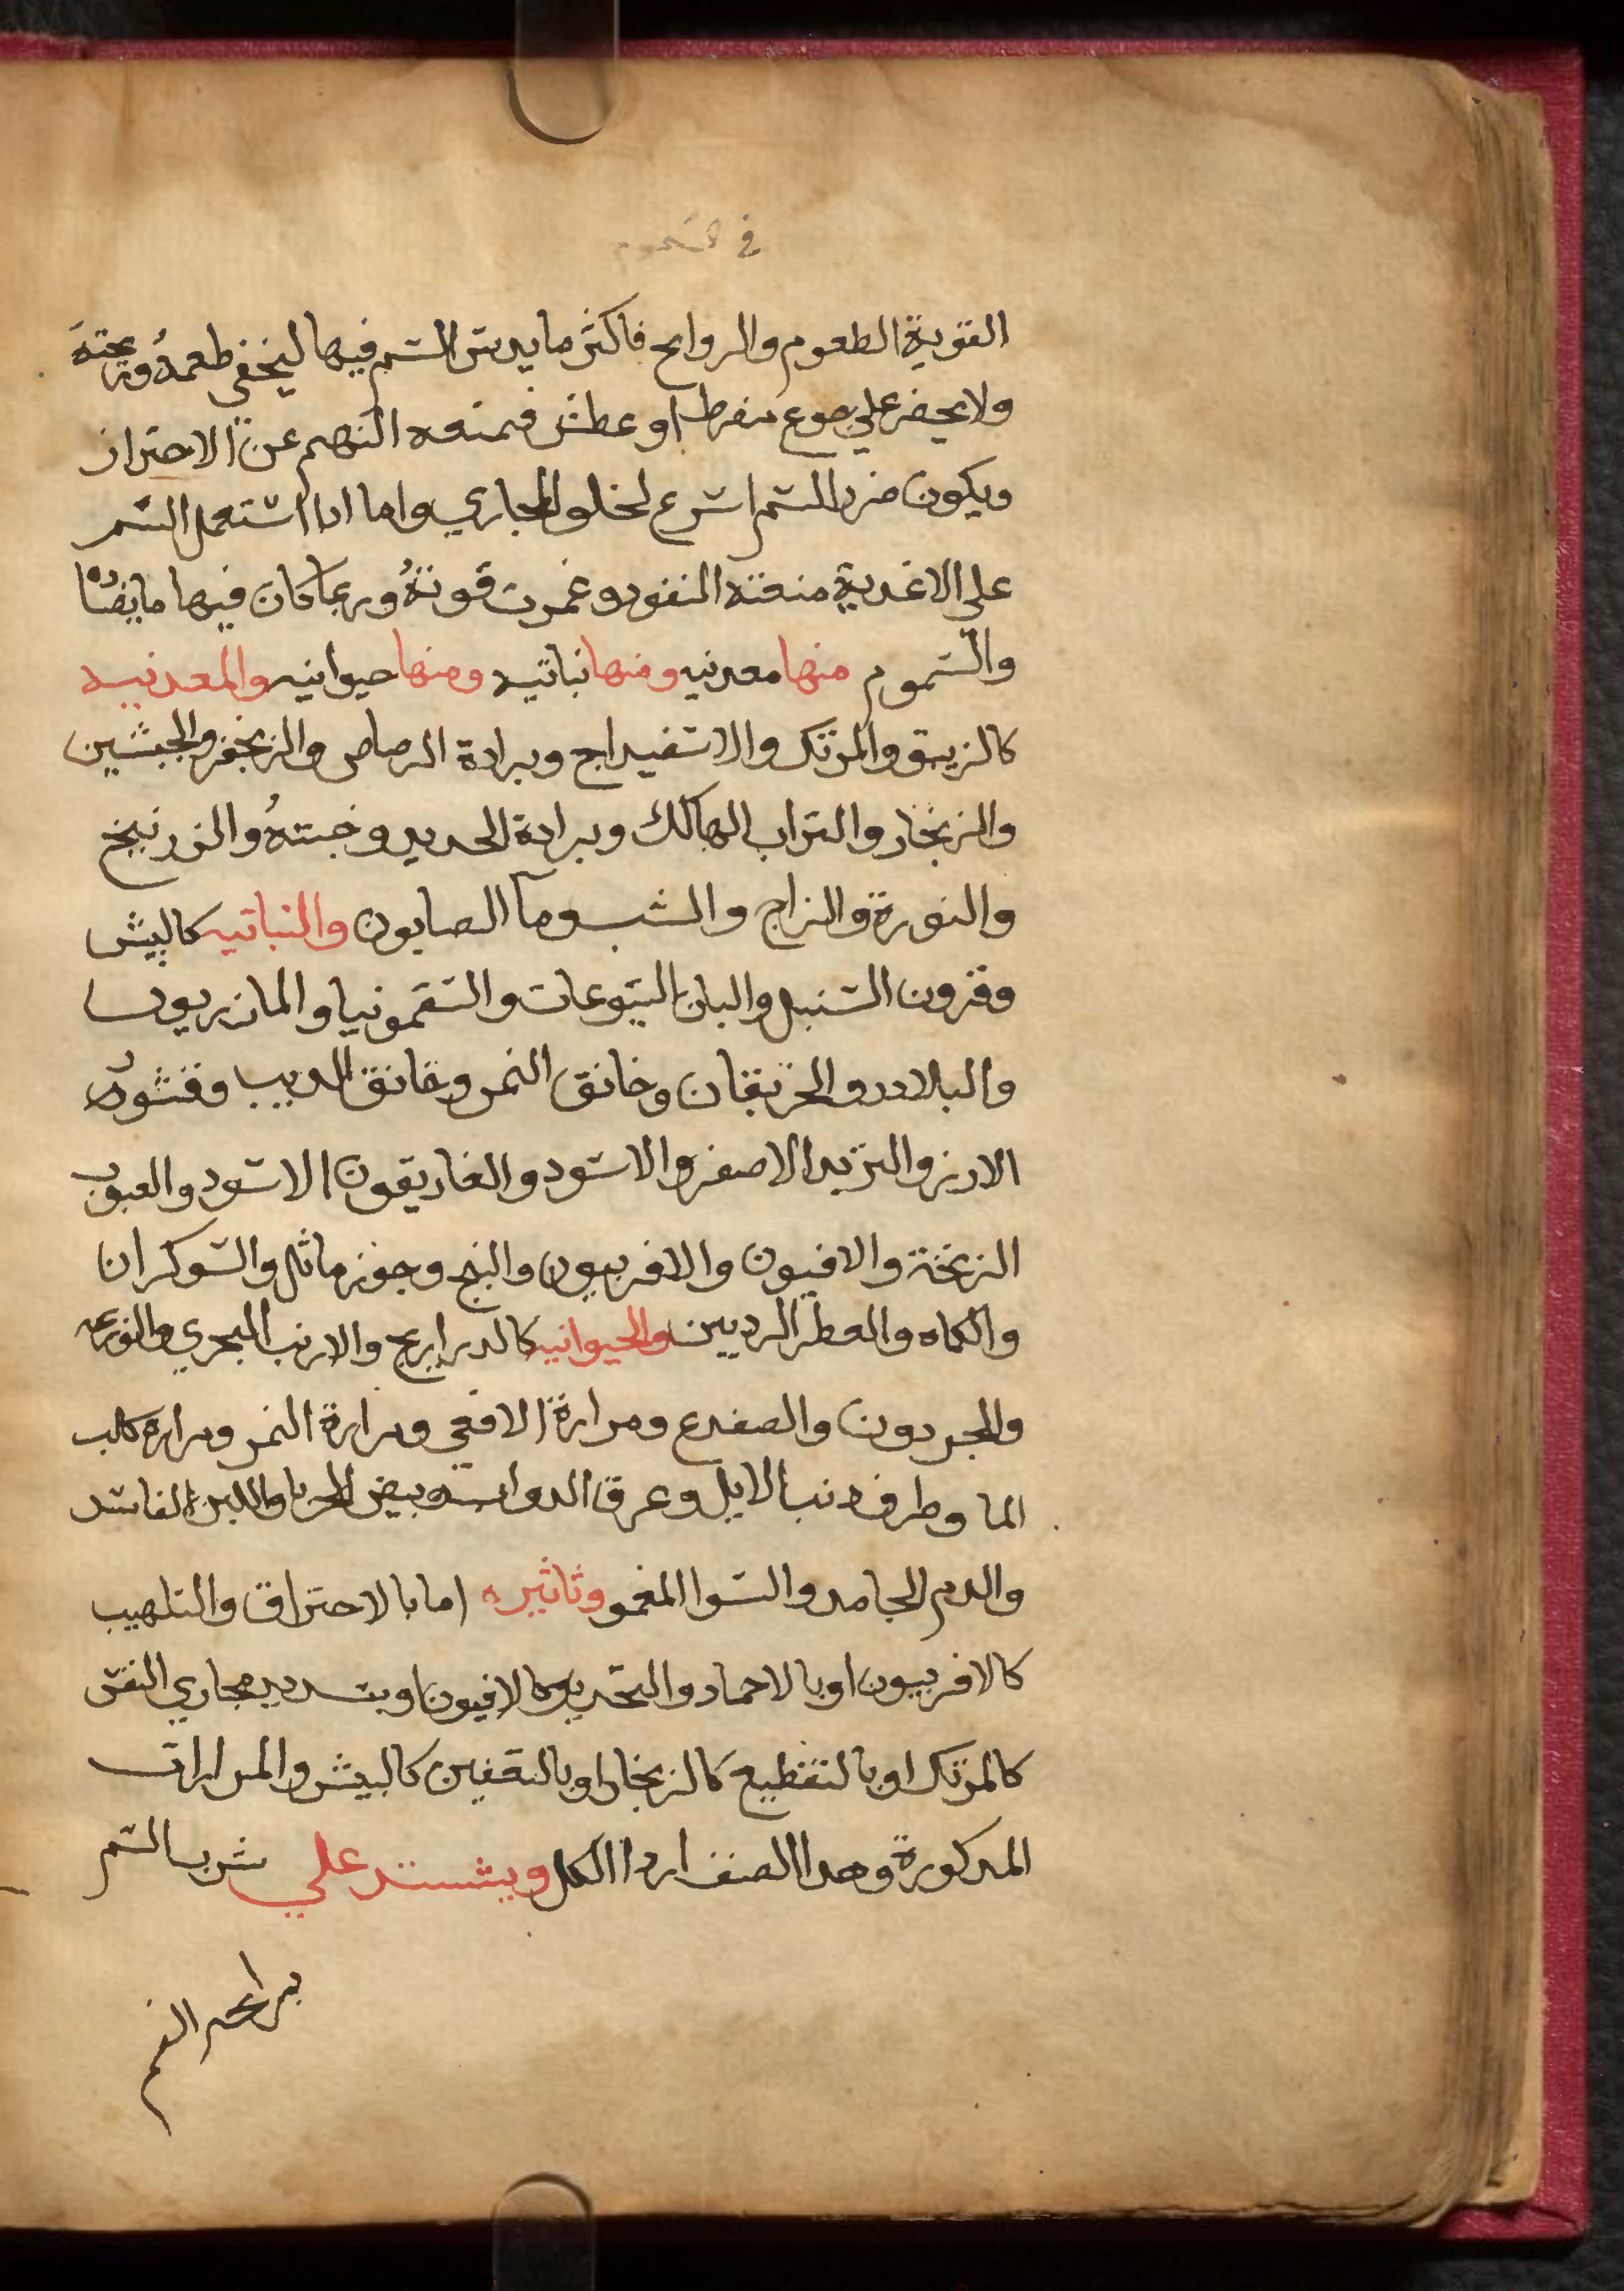 في السموم
القوية الطعوم والروايح فاكثر ما يدس السم فيها ليخفي طعمه وريحته
ولا يحضر علي جوع مفرط او عطش فيمنعه النهم عن الاحتراز
ويكون ضرر السم اسرع لخلو المجاري واما ادا استعمل السم
علي الاغدية منعته النفود وغمرت قوته وربما كان فيها ما يضاده
والسموم منها معدنيه ومنها نباتيه ومنها حيوانيه والمعدنيه
كالزيبق والمرتك والاسفيداج وبرادة الرصاص والزنجفر والجبسين
والزنجار والتراب الهالك وبرادة الحديد وخبثه والزرنيخ
والنورة والزاج والشب وما الصابون والنباتيه كالبيش
وقرون السنبل والبان اليتوعات والسقمونيا والمازريون
والبلادر والخربقان وخانق النمر وخانق الديب وقشور
الارز والتربد الاصفر والاسود والغاريقون الاسود والحبوب
الزنخة والافيون والافربيون والبنج وجوز ماثل والشوكران
والكماه والفطر الرديين والحيوانيه كالدراريح والارنب البحري والوزغه
والحردون والضفدع ومرارة الافعي ومرارة النمر ومرارة كلب
الما وطرف دنب الايل وعرق الدواب وبيض الحربا واللبن الفاسد
والدم الجامد والشوا المغموم وتاثيره اما بالاحتراق والتلهيب
كالافربيون او بالاحماد والتخدير كالافيون او بتسديد مجاري النفس
كالمرتك او بالتقطيع كالزنجار او بالتعفين كالبيش والمرارات
المدكورة وهدا الصنف اردا الكل ويستدل علي شرب السم
الفم